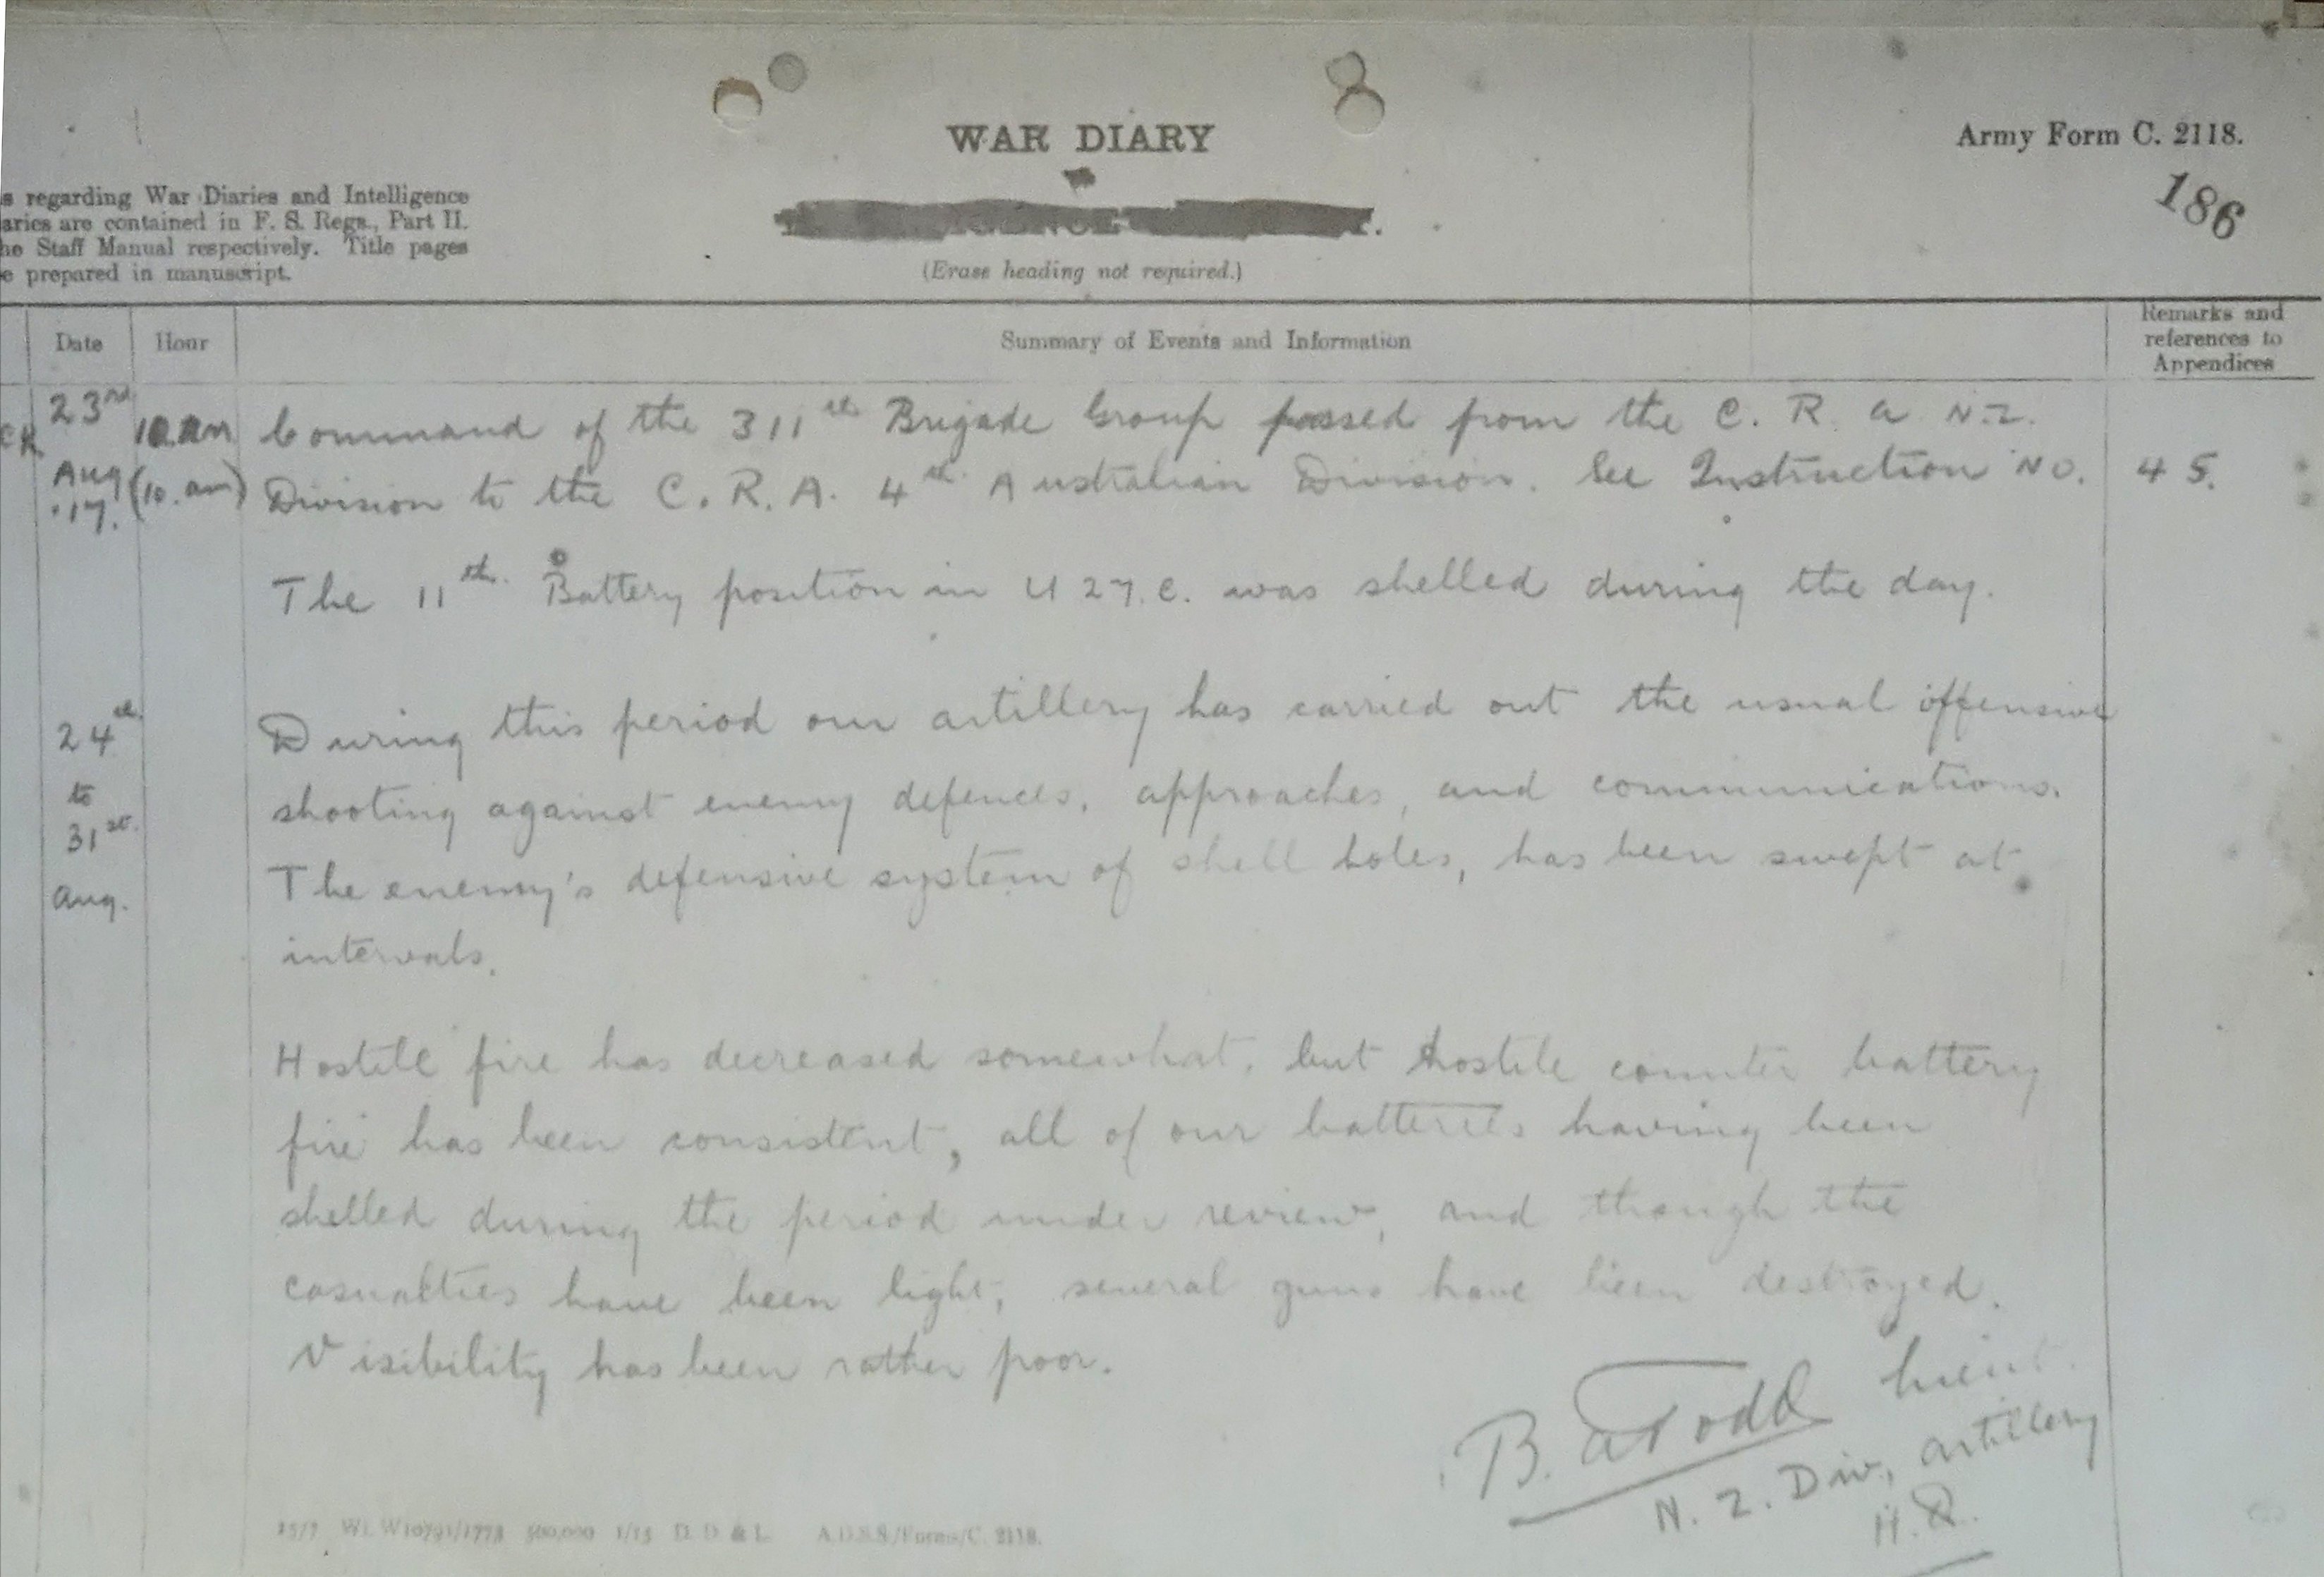 WAR DIARY
Army Form C. 2118.
186
s regarding War Diaries and Intelligence
aries are contained in F. S. Regs., Part II.
he Staff Manual respectively. Title pages
e prepared in manuscript.
(Erase heading not required.)
Date Hour Summary of Events and Information Remarks and references to Appendices
23rd 10 am Command of the 311th Brigade Group passed from the C. R. A N.Z.
Aug (10. am) Division to the C. R. A. 4th Australian Division. See Instruction No. 45.
'17.
The 11th Battery position in U 27. C. was shelled during the day.
24th During this period our artillery has carried out the usual offensive
to shooting against enemy defences, approaches, and communications.
31st The enemy's defensive system of shell holes, has been swept at
Aug. intervals.
Hostile fire has decreased somewhat, but hostile counter battery
fire has been consistent, all of our batteries having been
shelled during the period under review, and though the
casualties have been light, several guns have been destroyed.
Visibility has been rather poor.
B. A Todd Lieut.
N. Z. Div. Artillery
H.Q.
1/15 D. D. & L. A.D.S.S./Forms/C. 2118.